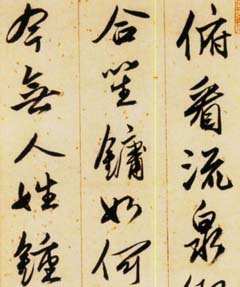 俯看流泉
合笙鏞如何
今無人姓鍾